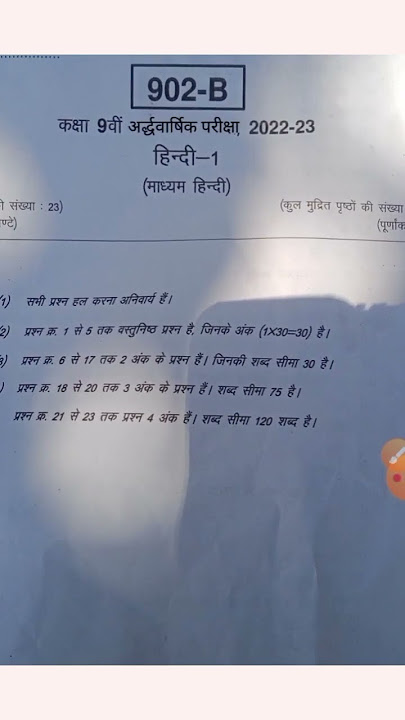 902-B
कक्षा 9वीं अर्द्धवार्षिक परीक्षा, 2022-23
हिन्दी–1
(माध्यम हिन्दी)
संख्या : 23) (कुल मुद्रित पृष्ठों की संख्या
1) सभी प्रश्न हल करना अनिवार्य हैं।
2) प्रश्न क्र. 1 से 5 तक वस्तुनिष्ठ प्रश्न है, जिनके अंक (1X30=30) है।
प्रश्न क्र. 6 से 17 तक 2 अंक के प्रश्न हैं। जिनकी शब्द सीमा 30 है।
) प्रश्न क्र. 18 से 20 तक 3 अंक के प्रश्न हैं। शब्द सीमा 75 है।
प्रश्न क्र. 21 से 23 तक प्रश्न 4 अंक हैं। शब्द सीमा 120 शब्द है।